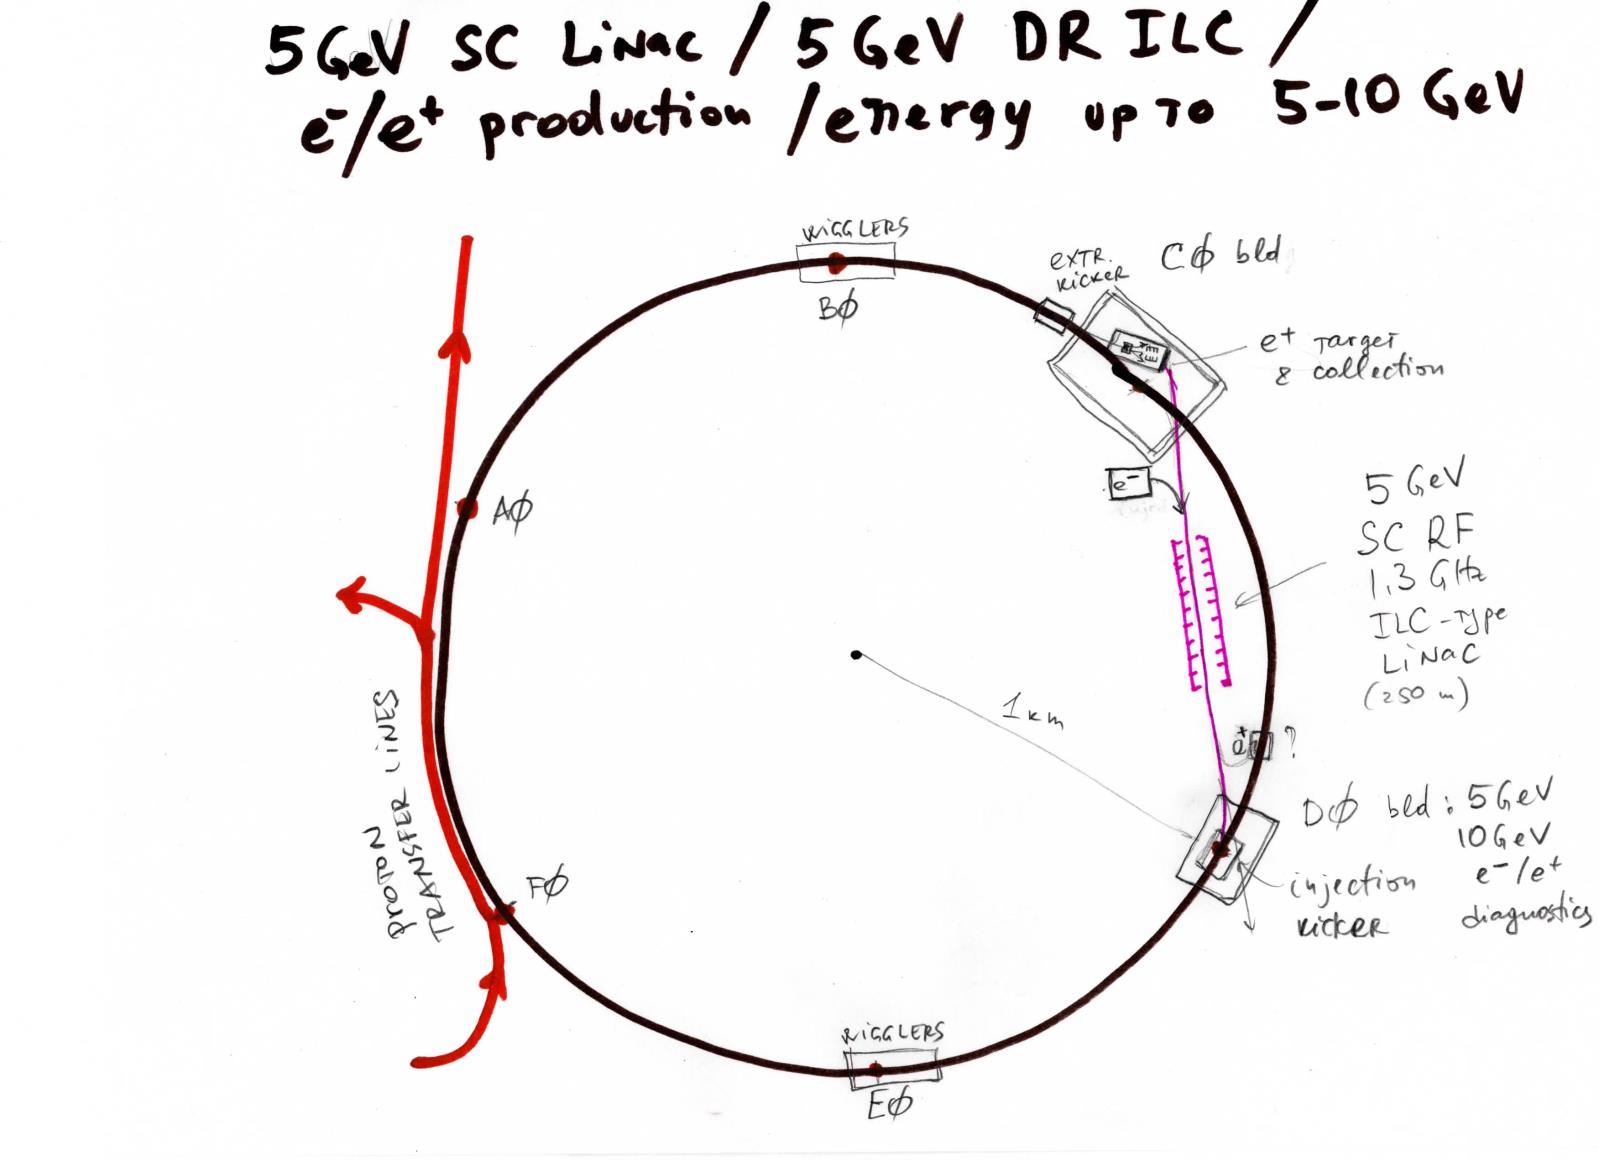 5 GeV SC LiNac / 5 GeV DR ILC /
e⁻/e⁺ production / energy up to 5-10 GeV
WIGGLERS
BØ
EXTR.
KICKER
CØ bld
e⁺ Target
& collection
e⁻
AØ
5 GeV
SC RF
1,3 GHz
ILC-Type
LiNaC
(250 m)
1 km
e⁺ ?
DØ bld : 5 GeV
10 GeV
e⁻/e⁺
diagnostics
injection
KICKER
PROTON
TRANSFER LINES
FØ
WIGGLERS
EØ